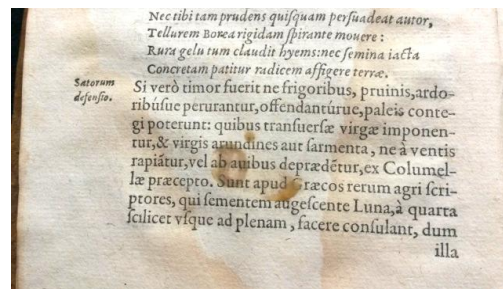 Nec tibi tam prudens quiſquam perſuadeat autor,
Tellurem Borea rigidam ſpirante mouere:
Rura gelu tum claudit hyems: nec ſemina iacta
Concretam patitur radicem affigere terræ.
Satorum
defenſio.
Si verò timor fuerit ne frigoribus, pruinis, ardo-
ribúſue perurantur, offendantúrue, paleis conte-
gi poterunt: quibus tranſuerſæ virgæ imponen-
tur, & virgis arundines aut ſarmenta, ne à ventis
rapiātur, vel ab auibus deprædētur, ex Columel-
læ præcepto. Sunt apud Græcos rerum agri ſcri-
ptores, qui ſementem augeſcente Luna, à quarta
ſcilicet vſque ad plenam, facere conſulant, dum
illa